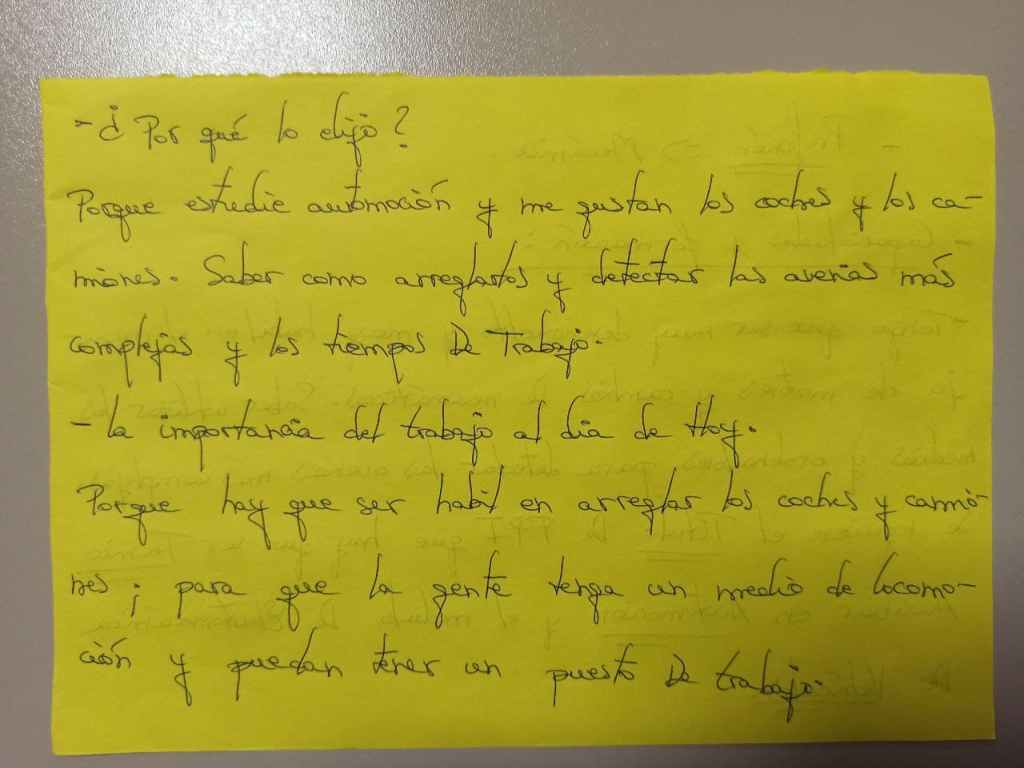 - ¿Por qué lo elijo?
Porque estudie automoción y me gustan los coches y los ca-
miones. Saber como arreglarlos y detectar las averias más
complejas y los tiempos De Trabajo.
- La importancia del trabajo al dia de Hoy.
Porque hay que ser habil en arreglar los coches y camio-
nes; para que la gente tenga un medio de locomo-
ción y puedan tener un puesto De trabajo.